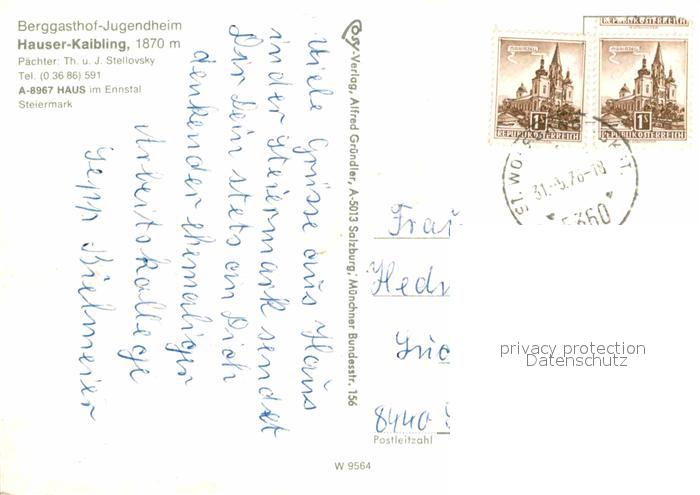 Berggasthof-Jugendheim
Hauser-Kaibling, 1870 m
Pächter: Th. u. J. Stellovsky
Tel. (0 36 86) 591
A-8967 HAUS im Ennstal
Steiermark
Viele Grüsse aus Haus
in der Steiermark sendet
Dir Dein stets an Dich
denkender ehemaliger
Arbeitskollege
Sepp Bielmeier
Verlag, Alfred Gründler, A-5013 Salzburg; Münchner Bundesstr. 156
REPUBLIK ÖSTERREICH
MARIAZELL
1S
REPUBLIK ÖSTERREICH
MARIAZELL
1S
REPUBLIK ÖSTERREICH
ST. WO
31.-5.76-18
5360
Frau
Hedw
8440
Postleitzahl
W 9564
privacy protection
Datenschutz